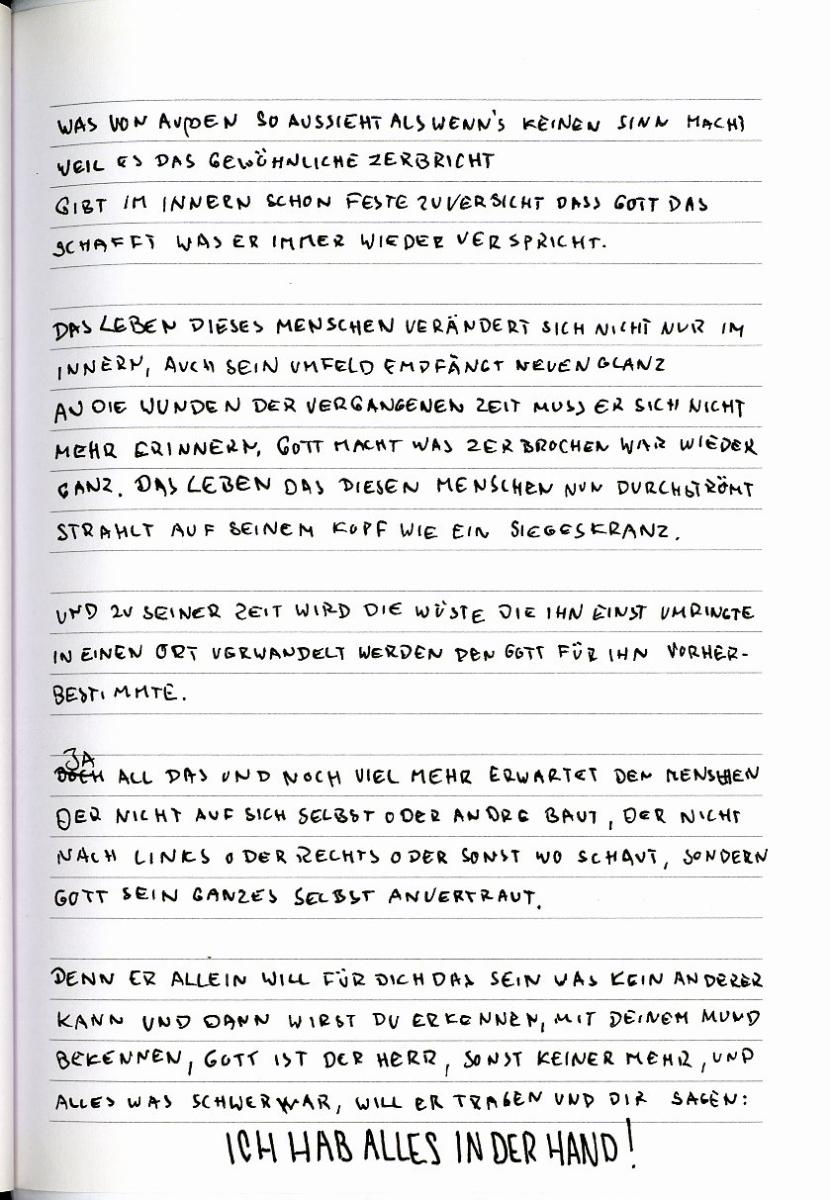 WAS VON AUßEN SO AUSSIEHT ALS WENN'S KEINEN SINN MACHT
WEIL ES DAS GEWÖHNLICHE ZERBRICHT
GIBT IM INNERN SCHON FESTE ZUVERSICHT DASS GOTT DAS
SCHAFFT WAS ER IMMER WIEDER VERSPRICHT.
DAS LEBEN DIESES MENSCHEN VERÄNDERT SICH NICHT NUR IM
INNERN, AUCH SEIN UMFELD EMPFÄNGT NEUEN GLANZ
AN DIE WUNDEN DER VERGANGENEN ZEIT MUSS ER SICH NICHT
MEHR ERINNERN, GOTT MACHT WAS ZERBROCHEN WAR WIEDER
GANZ. DAS LEBEN DAS DIESEN MENSCHEN NUN DURCHSTRÖMT
STRAHLT AUF SEINEM KOPF WIE EIN SIEGESKRANZ.
UND ZU SEINER ZEIT WIRD DIE WÜSTE DIE IHN EINST UMRINGTE
IN EINEN ORT VERWANDELT WERDEN DEN GOTT FÜR IHN VORHER-
BESTIMMTE.
JA
DOCH ALL DAS UND NOCH VIEL MEHR ERWARTET DEN MENSCHEN
DER NICHT AUF SICH SELBST ODER ANDRE BAUT, DER NICHT
NACH LINKS ODER RECHTS ODER SONST WO SCHAUT, SONDERN
GOTT SEIN GANZES SELBST ANVERTRAUT.
DENN ER ALLEIN WILL FÜR DICH DAS SEIN WAS KEIN ANDERER
KANN UND DANN WIRST DU ERKENNEN, MIT DEINEM MUND
BEKENNEN, GOTT IST DER HERR, SONST KEINER MEHR, UND
ALLES WAS SCHWER WAR, WILL ER TRAGEN UND DIR SAGEN:
ICH HAB ALLES IN DER HAND!